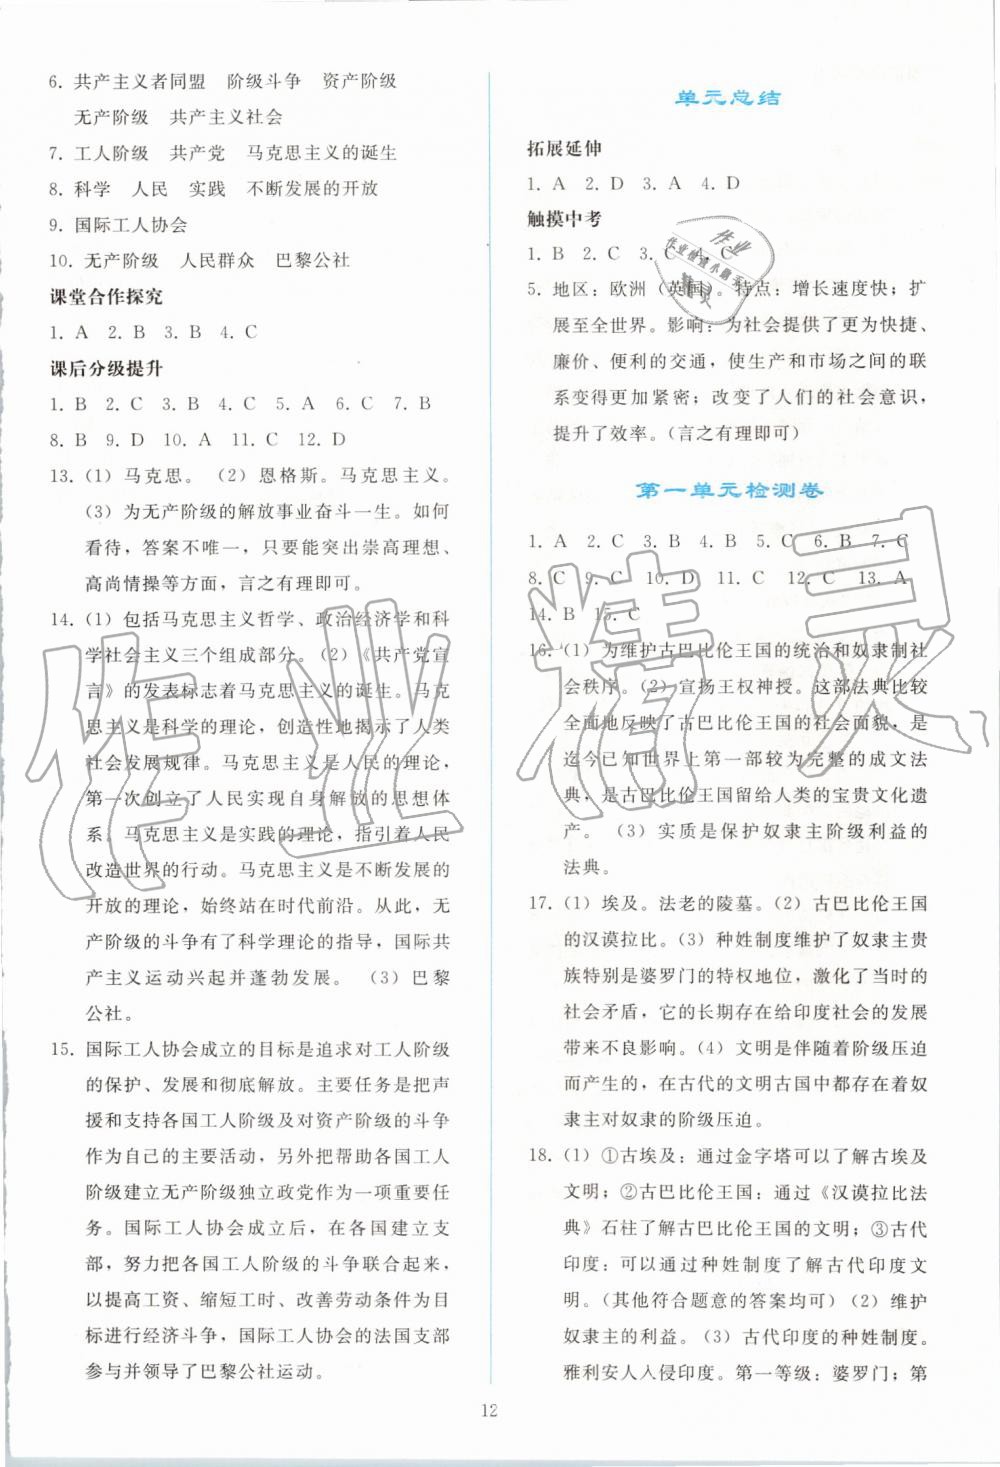 6. 共产主义者同盟 阶级斗争 资产阶级
无产阶级 共产主义社会
7. 工人阶级 共产党 马克思主义的诞生
8. 科学 人民 实践 不断发展的开放
9. 国际工人协会
10. 无产阶级 人民群众 巴黎公社
课堂合作探究
1. A 2. B 3. B 4. C
课后分级提升
1. B 2. C 3. B 4. C 5. A 6. C 7. B
8. B 9. D 10. A 11. C 12. D
13. (1) 马克思。 (2) 恩格斯。马克思主义。
(3) 为无产阶级的解放事业奋斗一生。如何
看待,答案不唯一,只要能突出崇高理想、
高尚情操等方面,言之有理即可。
14. (1) 包括马克思主义哲学、政治经济学和科
学社会主义三个组成部分。(2)《共产党宣
言》的发表标志着马克思主义的诞生。马克
思主义是科学的理论,创造性地揭示了人类
社会发展规律。马克思主义是人民的理论,
第一次创立了人民实现自身解放的思想体
系。马克思主义是实践的理论,指引着人民
改造世界的行动。马克思主义是不断发展的
开放的理论,始终站在时代前沿。从此,无
产阶级的斗争有了科学理论的指导,国际共
产主义运动兴起并蓬勃发展。 (3) 巴黎
公社。
15. 国际工人协会成立的目标是追求对工人阶级
的保护、发展和彻底解放。主要任务是把声
援和支持各国工人阶级及对资产阶级的斗争
作为自己的主要活动,另外把帮助各国工人
阶级建立无产阶级独立政党作为一项重要任
务。国际工人协会成立后,在各国建立支
部,努力把各国工人阶级的斗争联合起来,
以提高工资、缩短工时、改善劳动条件为目
标进行经济斗争,国际工人协会的法国支部
参与并领导了巴黎公社运动。
单元总结
拓展延伸
1. A 2. D 3. A 4. D
触摸中考
1. B 2. C 3. C 4. C
5. 地区:欧洲(英国)。特点:增长速度快;扩
展至全世界。影响:为社会提供了更为快捷、
廉价、便利的交通,使生产和市场之间的联
系变得更加紧密;改变了人们的社会意识,
提升了效率。(言之有理即可)
第一单元检测卷
1. A 2. C 3. B 4. B 5. C 6. B 7. C
8. C 9. C 10. D 11. C 12. C 13. A
14. B 15. C
16. (1) 为维护古巴比伦王国的统治和奴隶制社
会秩序。(2) 宣扬王权神授。这部法典比较
全面地反映了古巴比伦王国的社会面貌,是
迄今已知世界上第一部较为完整的成文法
典,是古巴比伦王国留给人类的宝贵文化遗
产。 (3) 实质是保护奴隶主阶级利益的
法典。
17. (1) 埃及。法老的陵墓。(2) 古巴比伦王国
的汉谟拉比。(3) 种姓制度维护了奴隶主贵
族特别是婆罗门的特权地位,激化了当时的
社会矛盾,它的长期存在给印度社会的发展
带来不良影响。(4) 文明是伴随着阶级压迫
而产生的,在古代的文明古国中都存在着奴
隶主对奴隶的阶级压迫。
18. (1) ①古埃及:通过金字塔可以了解古埃及
文明;②古巴比伦王国:通过《汉谟拉比法
典》石柱了解古巴比伦王国的文明;③古代
印度:可以通过种姓制度了解古代印度文
明。(其他符合题意的答案均可)(2) 维护
奴隶主的利益。(3) 古代印度的种姓制度。
雅利安人入侵印度。第一等级:婆罗门;第
12
作业精灵
作业
作业检查小助手
精灵